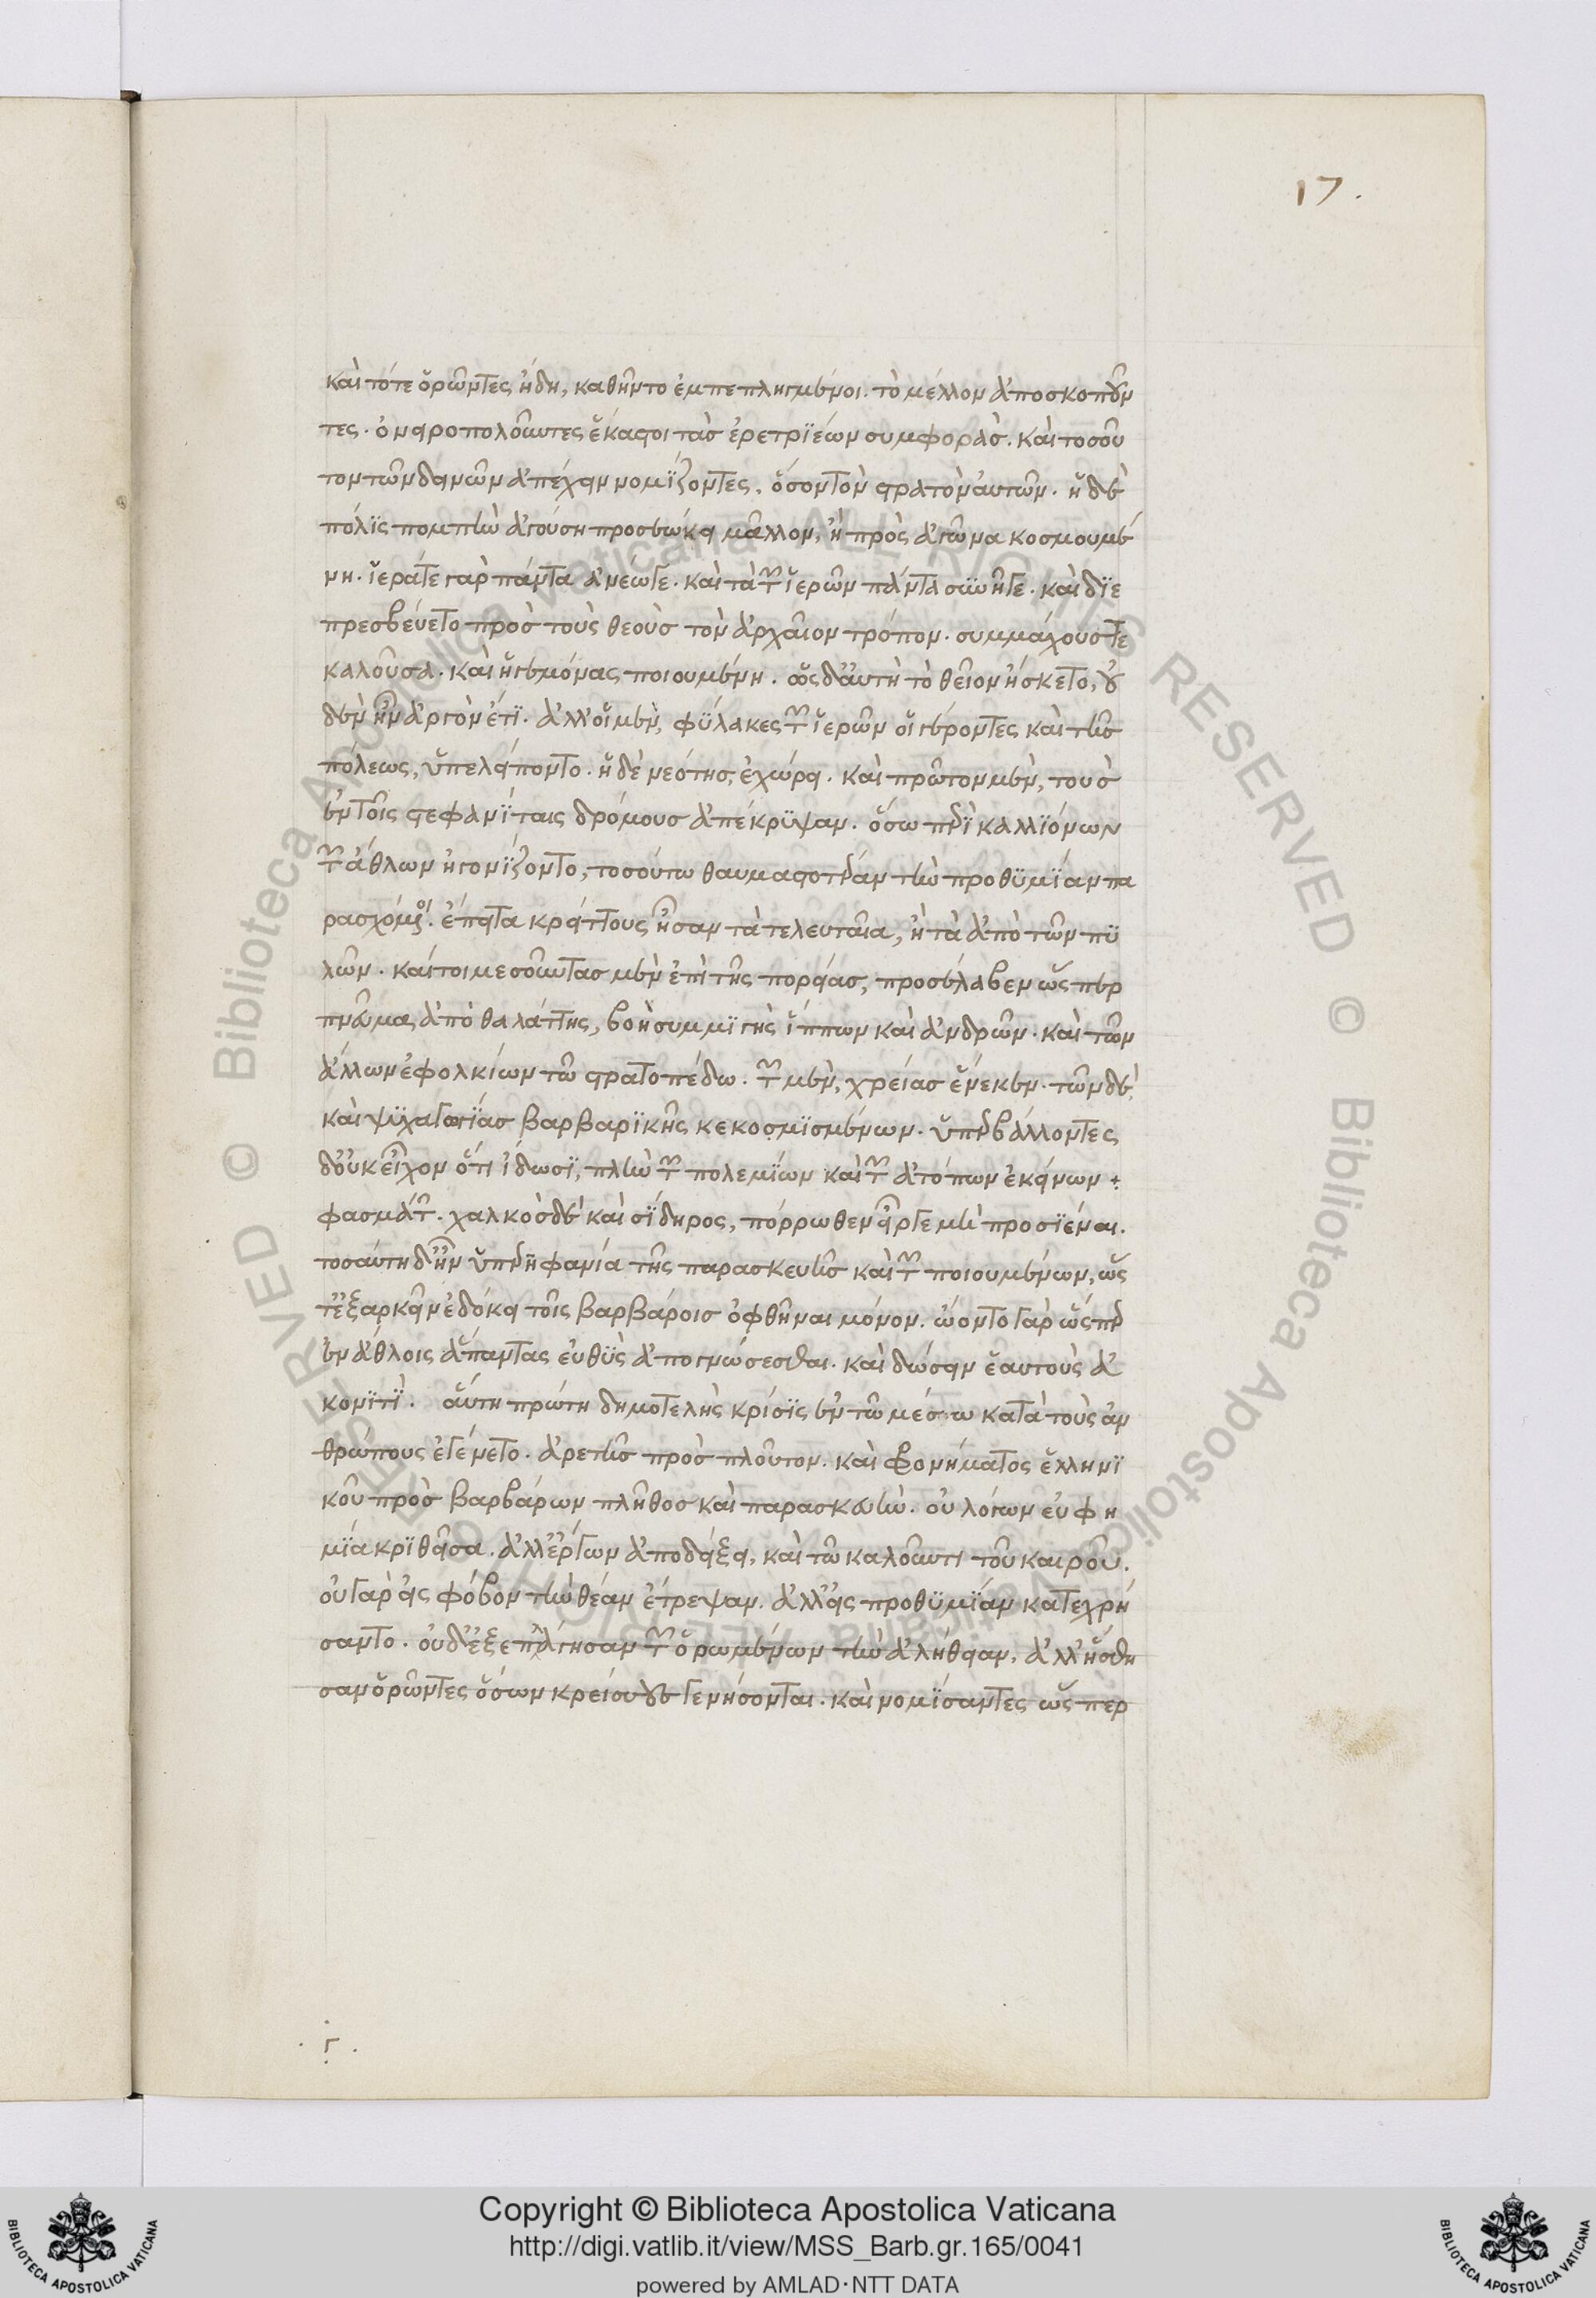 17.
καὶ τότε ὁρῶντες ἤδη, καθῆντο ἐμπεπληγμένοι. τὸ μέλλον ἀποσκοποῦν
τες. ὀνειροπολοῦντες ἕκαστοι τὰς ἐρετριέων συμφοράς. καὶ τοσοῦ
τον τῶν δεινῶν ἀπέχειν νομίζοντες, ὅσον τὸν στρατὸν αὐτῶν. ἡ δὲ
πόλις πομπὴν ἀγούση προσεώκει μᾶλλον, ἢ πρὸς ἀγῶνα κοσμουμέ
νη. ἱερά τε γὰρ πάντα ἀνέωγε. καὶ τὰ τῶν ἱερῶν πάντα συνῆγε. καὶ διε
πρεσβεύετο πρὸς τοὺς θεοὺς τὸν ἀρχαῖον τρόπον. συμμάχους τε
καλοῦσα. καὶ ἡγεμόνας ποιουμένη. ὡς δ' αὐτὴ τὸ θεῖον ἤσκετο, οὐ
δὲν ἦν ἀργὸν ἔτι. ἀλλ' οἱ μὲν, φύλακες τῶν ἱερῶν οἱ γέροντες καὶ τῆς
πόλεως, ὑπελείποντο. ἡ δὲ νεότης, ἐχώρει. καὶ πρῶτον μὲν, τοὺς
ἐν τοῖς στεφανίταις δρόμους ἀπέκρυψαν. ὅσω περὶ καλλιόνων
τῶν ἄθλων ἠγονίζοντο, τοσούτω θαυμαστοτέραν τὴν προθυμίαν πα
ρασχόμενοι. ἔπειτα κρείττους ἦσαν τὰ τελευταῖα, ἢ τὰ ἀπὸ τῶν πυ
λῶν. καίτοι μεσοῦντας μὲν ἐπὶ τῆς πορείας, προσέλαβεν ὥσπερ
πνεῦμα ἀπὸ θαλάττης, βοὴ συμμιγὴς ἵππων καὶ ἀνδρῶν. καὶ τῶν
ἄλλων ἐφολκίων τῶ στρατοπέδω. τῶν μὲν, χρείας ἕνεκεν. τῶν δὲ,
καὶ ψυχαγωγίας βαρβαρικῆς κεκοσμισμένων. ὑπερβάλλοντες
δ' οὐκ εἶχον ὅτι ἴδωσι, πλὴν τῶν πολεμίων καὶ τῶν ἀτόπων ἐκείνων
φασμάτων. χαλκὸς δὲ καὶ σίδηρος, πόρρωθεν εἶργε μὴ προσιέναι.
τοσαύτη δ' ἦν ὑπερηφανία τῆς παρασκευῆς καὶ τῶν ποιουμένων, ὥς
τ' ἐξαρκεῖν ἐδόκει τοῖς βαρβάροις ὀφθῆναι μόνον. ὤοντο γὰρ ὥσπερ
ἐν ἄθλοις ἅπαντας εὐθὺς ἀπογνώσεσθαι. καὶ δώσειν ἑαυτοὺς ἀ
κονιτί. αὕτη πρώτη δημοτελὴς κρίσις ἐν τῶ μέσω κατὰ τοὺς ἀν
θρώπους ἐγένετο. ἀρετῆς πρὸς πλοῦτον. καὶ φρονήματος ἑλληνι
κοῦ πρὸς βαρβάρων πλῆθος καὶ παρασκευὴν. οὐ λόγων εὐφη
μία κριθεῖσα. ἀλλ' ἔργων ἀποδείξει, καὶ τῶ καλοῦντι τοῦ καιροῦ.
οὐ γὰρ εἰς φόβον τὴν θέαν ἔτρεψαν. ἀλλ' εἰς προθυμίαν κατεχρή
σαντο. οὐδ' ἐξεπλάγησαν τῶν ὁρωμένων τὴν ἀλήθειαν, ἀλλ' ἥσθη
σαν ὁρῶντες ὅσων κρείσους γενήσονται. καὶ νομίσαντες ὥσπερ
.γ.
Copyright © Biblioteca Apostolica Vaticana
http://digi.vatlib.it/view/MSS_Barb.gr.165/0041
powered by AMLAD·NTT DATA